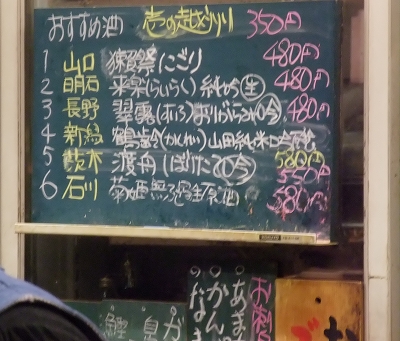 おすすめ酒 壱の越州 350円
1 山口 獺祭にごり 480円
2 明石 来楽(らいらく)純から生 480円
3 長野 翠露(すいろ)おりがらみ吟 480円
4 新潟 鶴齢(かくれい)山田純米吟
580円
5 茨木 渡舟しぼりたて吟 550円
6 石川 菊姫無ろ過生原酒 580円
お刺
あま
かん
なま